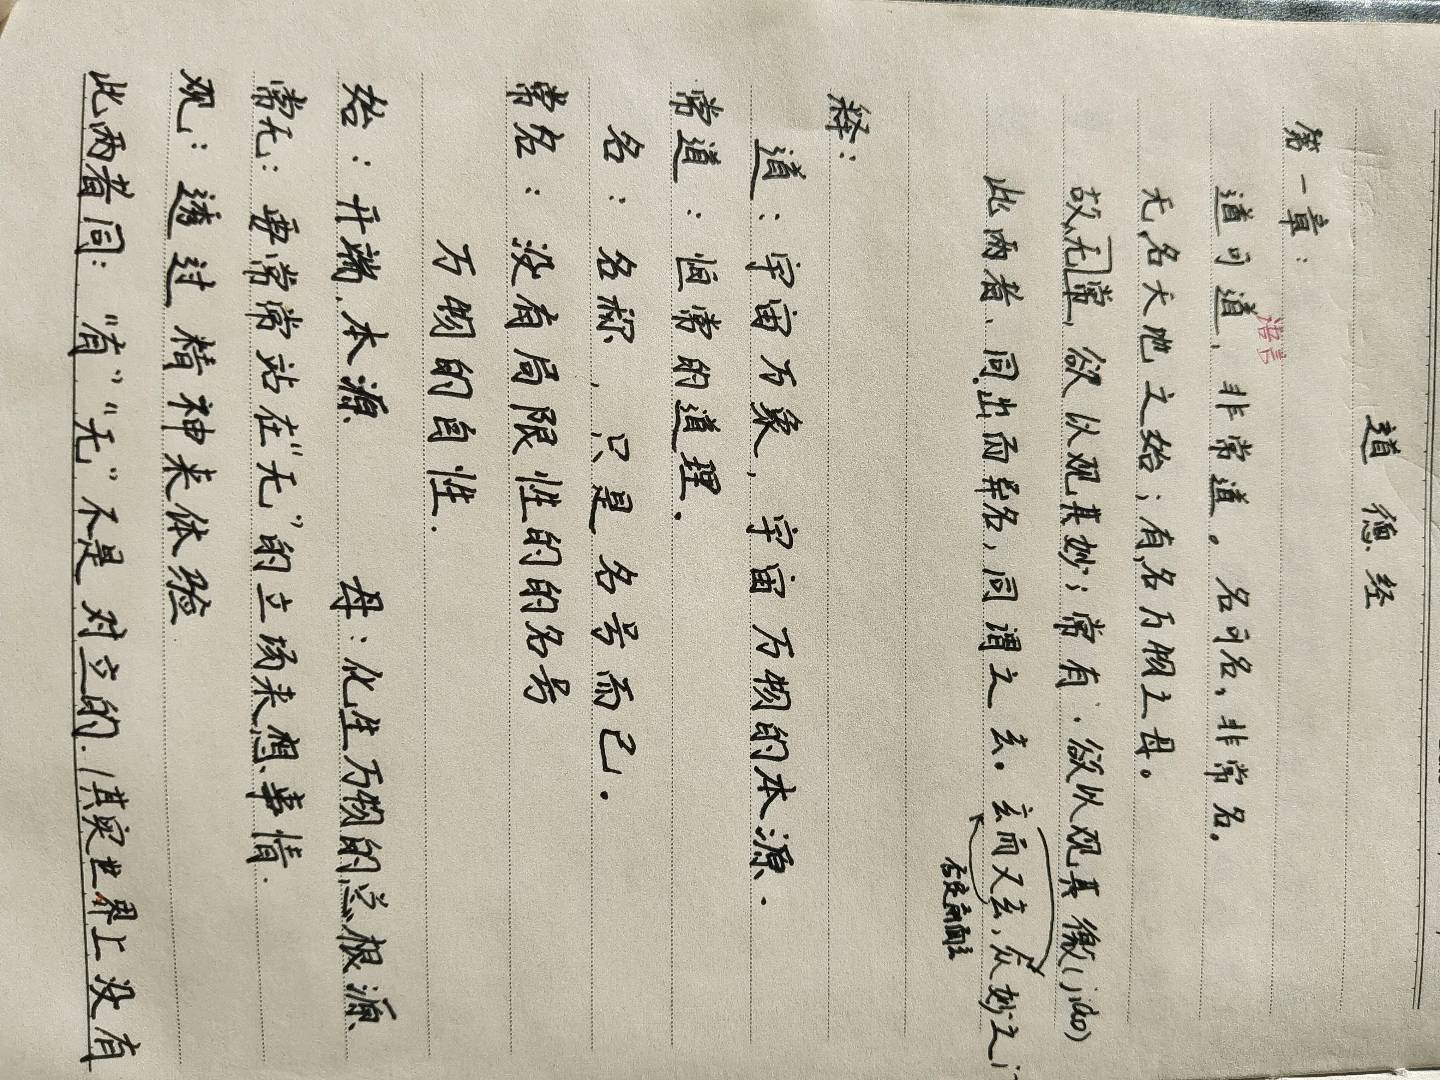 道德经
第一章：
道可道，非常道。名可名，非常名。
语言
无名天地之始；有名万物之母。
故无常，欲以观其妙；常有，欲以观其徼(jiao)
此两者、同出而异名，同谓之玄。玄而又玄，众妙之
释：
道：宇宙万象，宇宙万物的本源.
常道：恒常的道理.
名：名称，只是名号而已.
常名：没有局限性的的名号
万物的自性.
始：开端、本源 母：化生万物的总根源
常无：要常常站在“无”的立场来想事情.
观：透过精神来体验
此两者同：“有”“无”不是对立的.（其实世界上没有